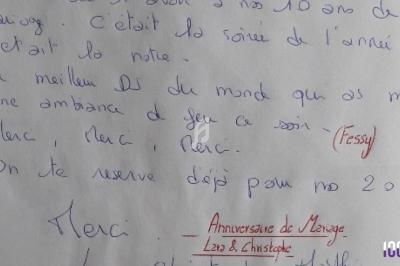 à nos 10 ans de
C'était la soirée de l'année
était la notre.
meilleur DJ du monde qui as m
ne ambiance d feu ce soir -
(Fessy)
erci, Merci, Merci.
On te reserve déjà pour nos 20
Merci
- Anniversaire de Mariage
Lara & Christophe
100